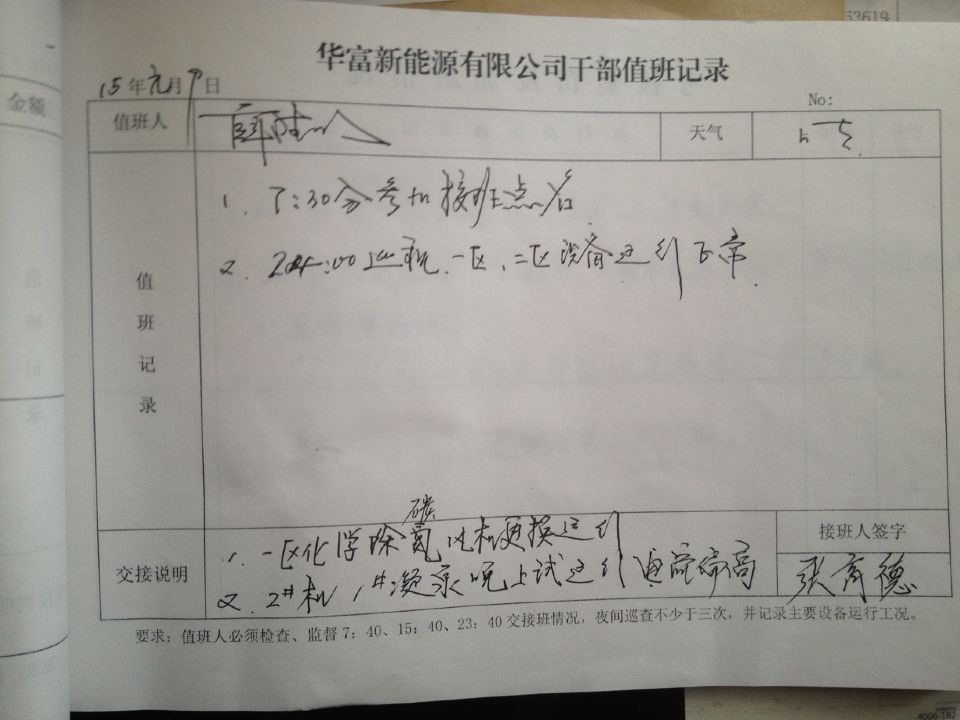 63619
华富新能源有限公司干部值班记录
15年元月9日
No:
金额
值班人
天气
值班记录
1. 7:30分参加接班点名
2. :00巡视一区、二区设备运行正常.
交接说明
碳
1. 一区化学除氮风机更换运行
2. 2#机1#凝泵晚上试运行电流偏高
接班人签字
张育德
要求:值班人必须检查、监督7:40、15:40、23:40交接班情况,夜间巡查不少于三次,并记录主要设备运行工况。
4006-182